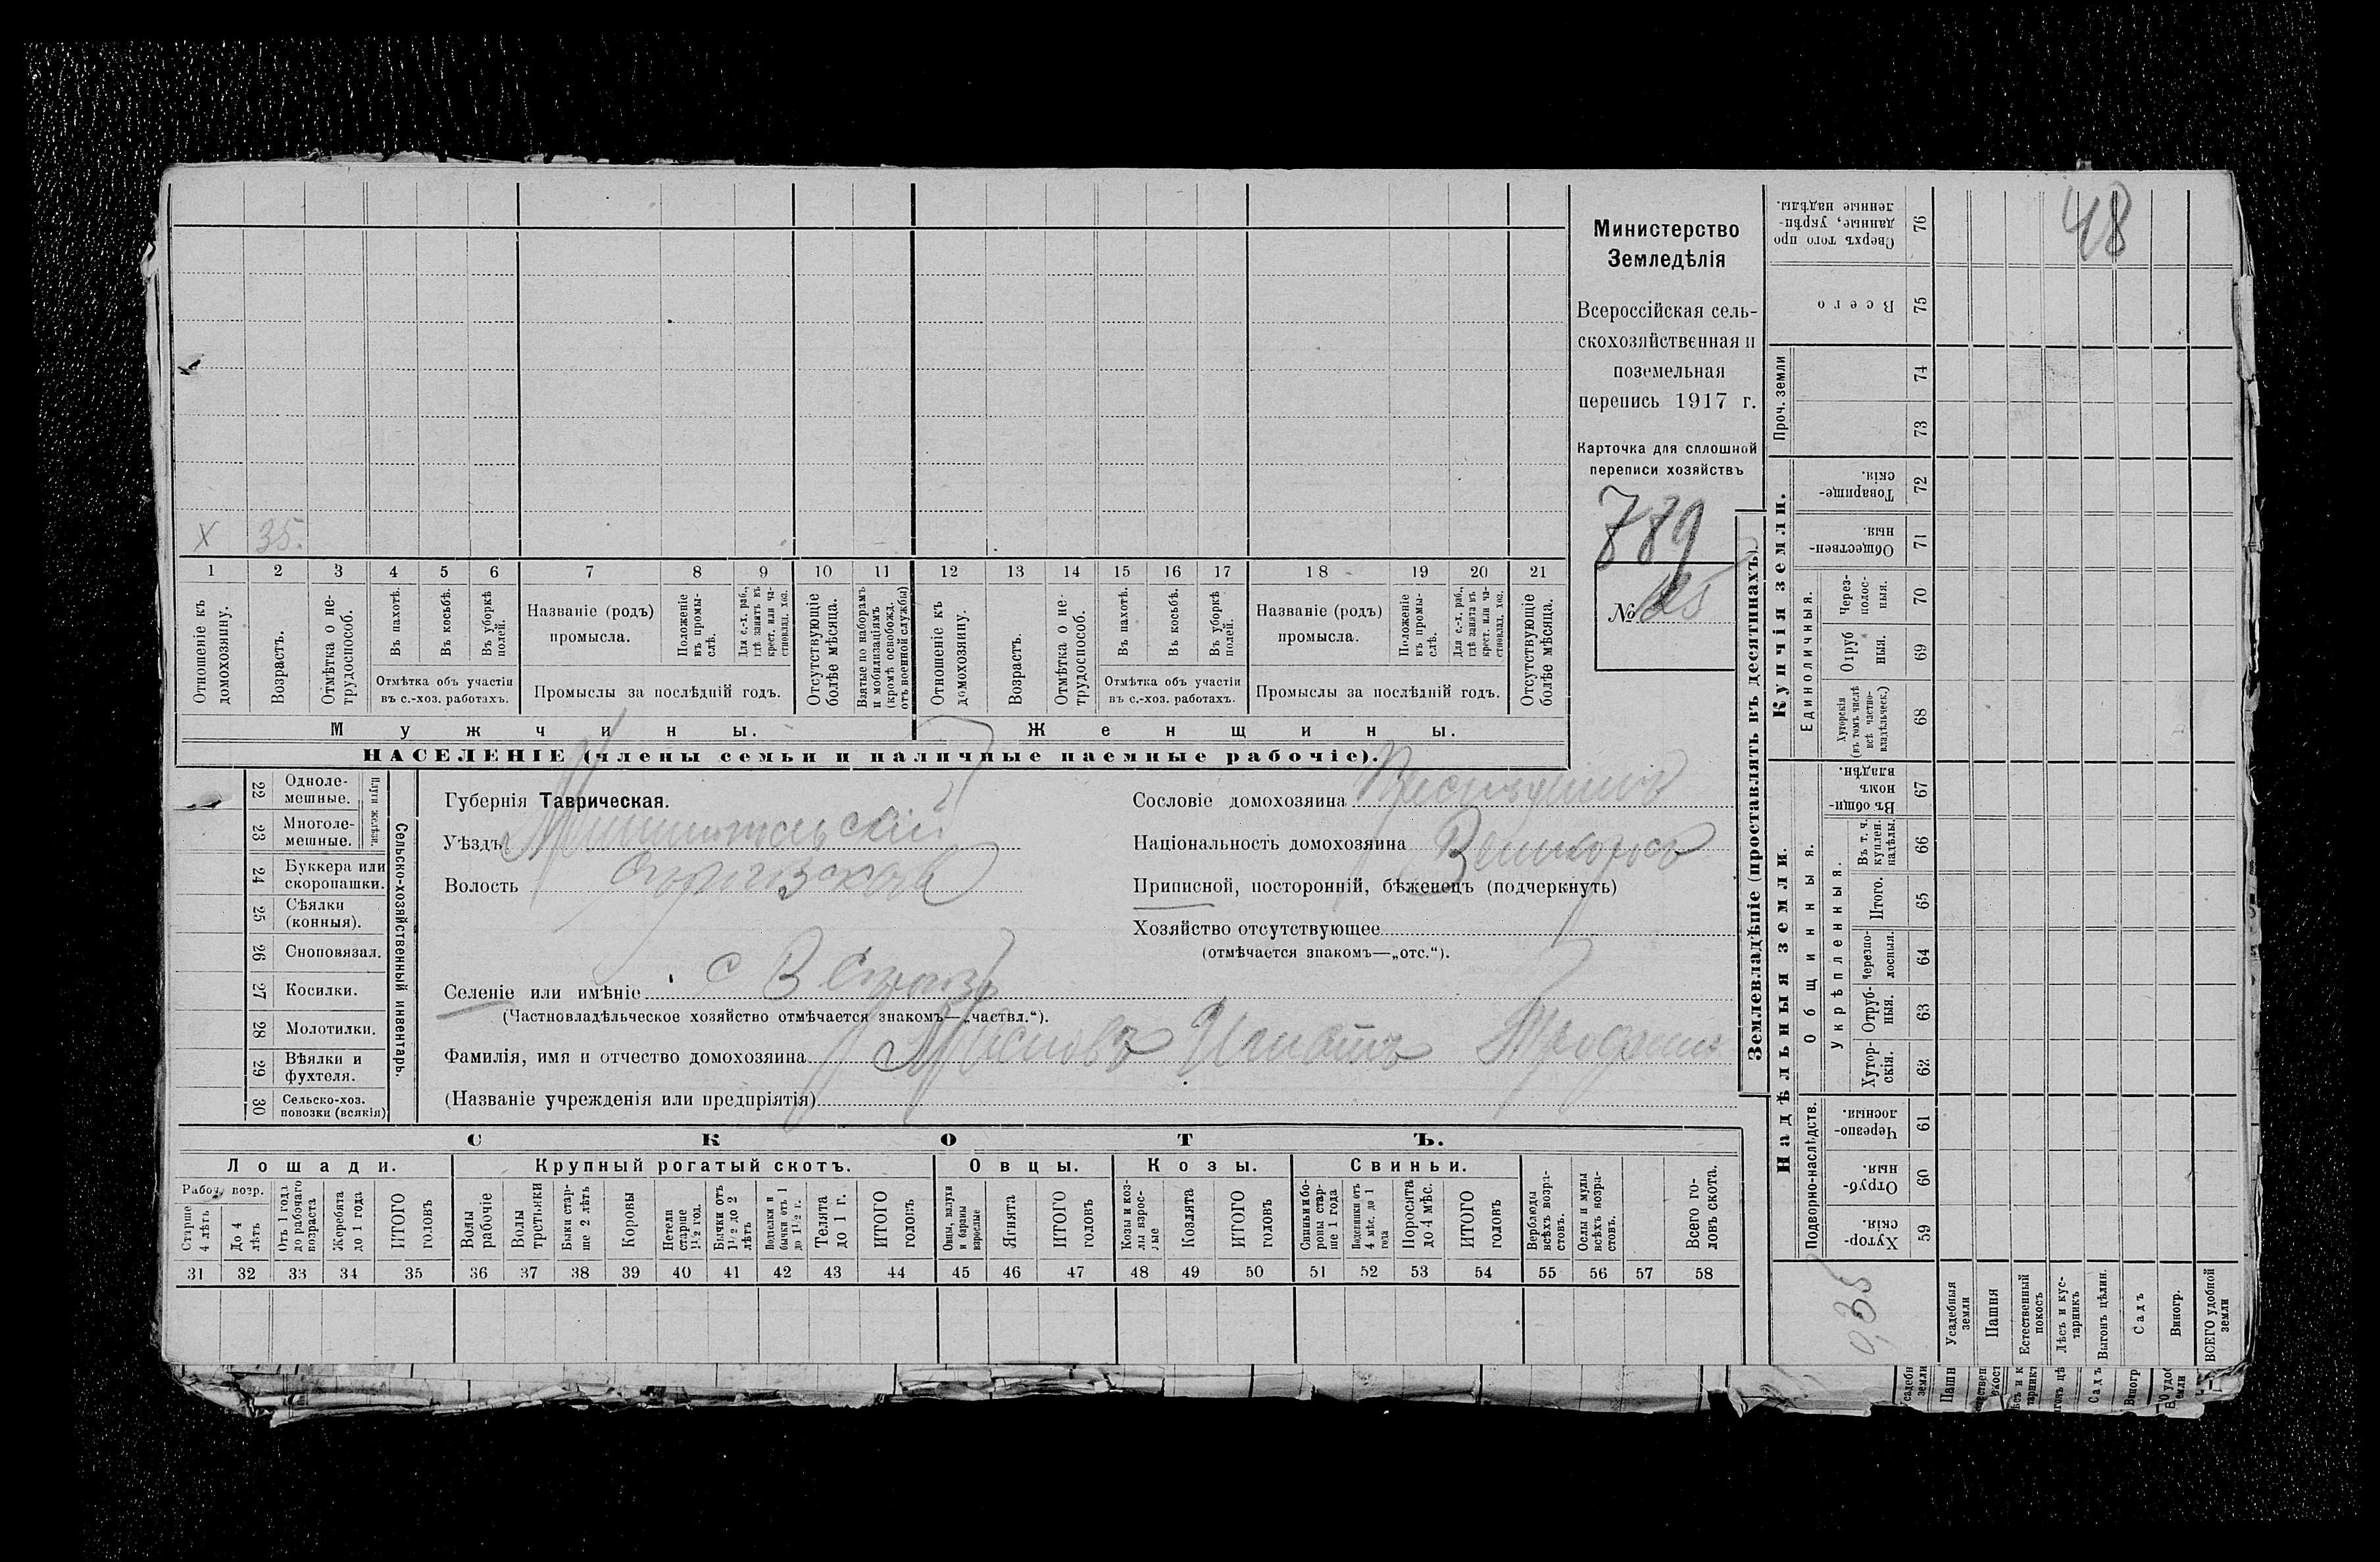 Министерство
Земледѣлія
Всероссійская сель-
скохозяйственная и
поземельная
перепись 1917 г.
Карточка для сплошной
переписи хозяйствъ
789
№ 25
48
X 35.
1 2 3 4 5 6 7 8 9 10 11 12 13 14 15 16 17 18 19 20 21
Отношеніе къ домохозяину.
Возрастъ.
Отмѣтка о не-трудоспособ.
Въ пахотѣ.
Въ косьбѣ.
Въ уборкѣ полей.
Отмѣтка объ участіи
въ с.-хоз. работахъ.
Названіе (родъ)
промысла.
Положеніе въ промы-слѣ.
Для с.-х. раб., гдѣ занятъ въ крест. или ча-стновлад. хоз.
Промыслы за послѣдній годъ.
Отсутствующіе болѣе мѣсяца.
Взятые по наборамъ и мобилизаціямъ (кромѣ освобожд. отъ военной службы)
Отношеніе къ домохозяину.
Возрастъ.
Отмѣтка о не-трудоспособ.
Въ пахотѣ.
Въ косьбѣ.
Въ уборкѣ полей.
Отмѣтка объ участіи
въ с.-хоз. работахъ.
Названіе (родъ)
промысла.
Положеніе въ промы-слѣ.
Для с.-х. раб., гдѣ занята въ крест. или ча-стновлад. хоз.
Промыслы за послѣдній годъ.
Отсутствующіе болѣе мѣсяца.
Мужчины. Женщины.
НАСЕЛЕНІЕ (члены семьи и наличные наемные рабочіе).
22 Одноле-мешные.
23 Многоле-мешные.
Плуги желѣзн.
24 Буккера или скоропашки.
25 Сѣялки (конныя).
26 Сноповязал.
27 Косилки.
28 Молотилки.
29 Вѣялки и фухтеля.
30 Сельско-хоз. повозки (всякія)
Сельско-хозяйственный инвентарь.
Губернія Таврическая.
Уѣздъ Мелитопольскій
Волость
Селеніе или имѣніе с В
(Частновладѣльческое хозяйство отмѣчается знакомъ—„частвл.“).
Фамилія, имя и отчество домохозяина Игнатъ
(Названіе учрежденія или предпріятія)
Сословіе домохозяина
Національность домохозяина Великорос
Приписной, посторонній, бѣженецъ (подчеркнуть)
Хозяйство отсутствующее
(отмѣчается знакомъ—„отс.“).
СКОТЪ.
Лошади. Крупный рогатый скотъ. Овцы. Козы. Свиньи.
Рабоч. возр.
Старше 4 лѣтъ
До 4 лѣтъ
Отъ 1 года до рабочаго возраста
Жеребята до 1 года
ИТОГО головъ
Волы рабочіе
Волы третьяки
Быки стар-ше 2 лѣтъ
Коровы
Нетели старше 1½ год.
Бычки отъ 1½ до 2 лѣтъ
Подтелки и бычки отъ 1 до 1½ г.
Телята до 1 г.
ИТОГО головъ
Овцы, валухи и бараны взрослые
Ягнята
ИТОГО головъ
Козы и коз-лы взрос-лые
Козлята
ИТОГО головъ
Свиньи и бо-ровы стар-ше 1 года
Подсвинки отъ 4 мѣс. до 1 года
Поросята до 4 мѣс.
ИТОГО головъ
Верблюды всѣхъ возра-стовъ.
Ослы и мулы всѣхъ возра-стовъ.
Всего го-ловъ скота.
31 32 33 34 35 36 37 38 39 40 41 42 43 44 45 46 47 48 49 50 51 52 53 54 55 56 57 58
Землевладѣніе (проставлять въ десятинахъ).
Купчія земли.
Надѣльныя земли.
Сверхъ того про-данные, укрѣп-ленные надѣлы. 76
Всего 75
Проч. земли
74
73
Товарище-скія. 72
Обществен-ныя. 71
Единоличныя.
Через-полос-ныя. 70
Отруб ныя. 69
Хуторскія (въ томъ числѣ всѣ частно-владѣльческ.) 68
Въ общи-номъ владѣн. 67
Общинныя.
Укрѣпленныя.
Въ т. ч. куплен. надѣлы. 66
Итого. 65
Черезпо-лосныя. 64
Отруб-ныя. 63
Хутор-скія. 62
Подворно-наслѣдств.
Черезпо-лосныя. 61
Отруб-ныя. 60
Хутор-скія. 59
Усадебныя земли
Пашня
Естественный покосъ
Лѣсъ и кус-тарникъ
Выгонъ цѣлин.
Садъ
Виногр.
ВСЕГО удобной земли